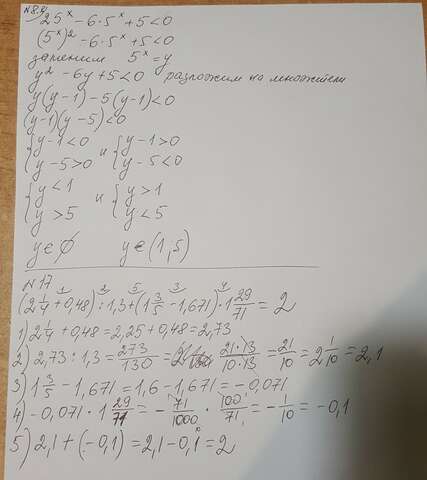 №8.4
25ˣ - 6·5ˣ + 5 < 0
(5ˣ)² - 6·5ˣ + 5 < 0
заменим 5ˣ = y
y² - 6y + 5 < 0 разложим на множители
y(y-1) - 5(y-1) < 0
(y-1)(y-5) < 0
{y-1<0 и {y-1>0
{y-5>0 {y-5<0
{y<1 и {y>1
{y>5 {y<5
y∈∅ y∈(1,5)
№17
1 2 5 3 4
(2 1/4 + 0,48) : 1,3 + (1 3/5 - 1,671) · 1 29/71 = 2
1) 2 1/4 + 0,48 = 2,25 + 0,48 = 2,73
2) 2,73 : 1,3 = 273/130 = 21·13/10·13 = 21/10 = 2 1/10 = 2,1
3) 1 3/5 - 1,671 = 1,6 - 1,671 = -0,071
4) -0,071 · 1 29/71 = - 71/1000 · 100/71 = - 1/10 = -0,1
5) 2,1 + (-0,1) = 2,1 - 0,1 = 2